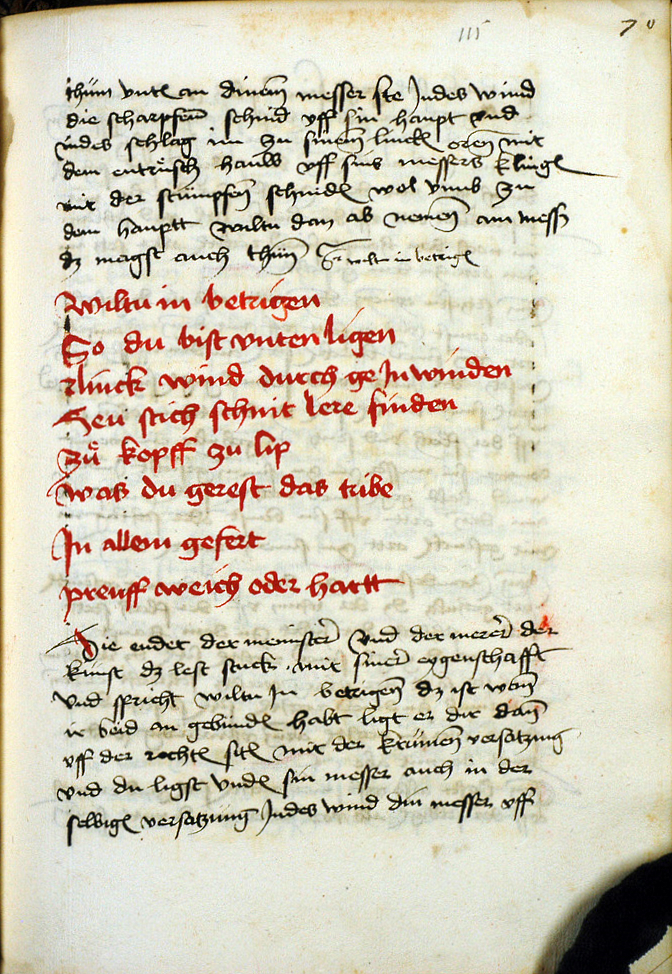 115
70
thün vntℓ an dinem messer ste Indes wind
die scharpfen schnid vff sin haupt vnd
indes schlag im zu sinem linckℓ oren mit
dem entrüsch hauw vff sins messers klingℓ
mit der stumpfen schnidℓ wol vmb zu
dem hauptt wiltu dan ab nemen am mess
dz magst auch thün wiltu in betrigℓ
Wiltu in betrigen
So du bist vnten ligen
zlinck wind durch ge In winden
Heu stich schnit lere finden
zů kopff zu lip
was du gerest das tribe
In allem gefert
preuff weich oder hartt
Hie endet der meinster vnd der merer der
kunst dz lest stuck mit siner eygenschafft
vnd spricht wiltu In betrigen dz ist wen
ir beid an gebundℓ habt ligt er dir dan
vff der rechtℓ sitℓ mit der krumen versatzung
vnd du ligst vndℓ sin messer auch in der
selbigℓ versatzung Indes wind din messer vff